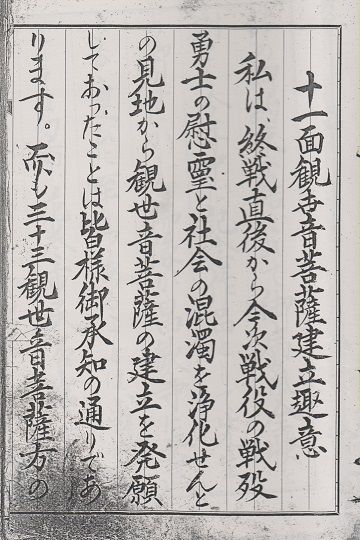 十一面観世音菩薩建立趣意
私は、終戦直後から今次戦役の戦歿
勇士の慰霊と社会の混濁を浄化せんと
の見地から観世音菩薩の建立を発願
しておったことは皆様御承知の通りであ
ります。而も三十三観世音菩薩方の